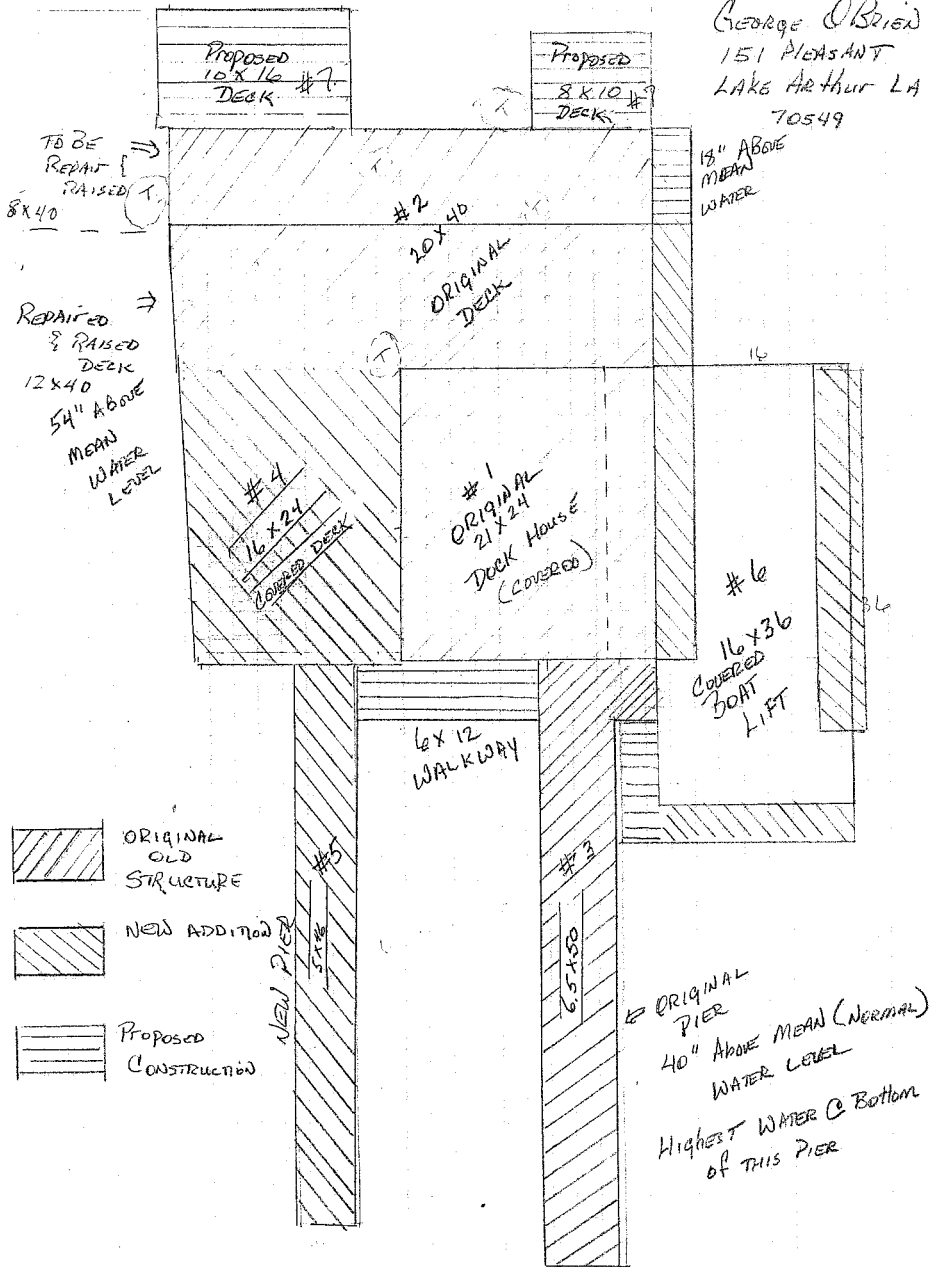 GEORGE O'BRIEN
151 PLEASANT
LAKE ARTHUR LA
70549
PROPOSED
10 X 16 #7
DECK
PROPOSED
8 X 10
DECK #
18" ABOVE
MEAN
WATER
TO BE
REPAIR &
RAISED
8X40
T
T
T
T
T
#2
20 X 40
ORIGINAL
DECK
REPAIRED
& RAISED
DECK
12X40
54" ABOVE
MEAN
WATER
LEVEL
16
#4
16 X 24
COVERED DECK
#1
ORIGINAL
21 X 24
DOCK HOUSE
(COVERED)
#6
16 X 36
COVERED
BOAT
LIFT
36
6 X 12
WALKWAY
ORIGINAL
OLD
STRUCTURE
NEW ADDITION
PROPOSED
CONSTRUCTION
NEW PIER
#5
#3
6.5 X 50
ORIGINAL
PIER
40" ABOVE MEAN (NORMAL)
WATER LEVEL
HIGHEST WATER @ BOTTOM
OF THIS PIER